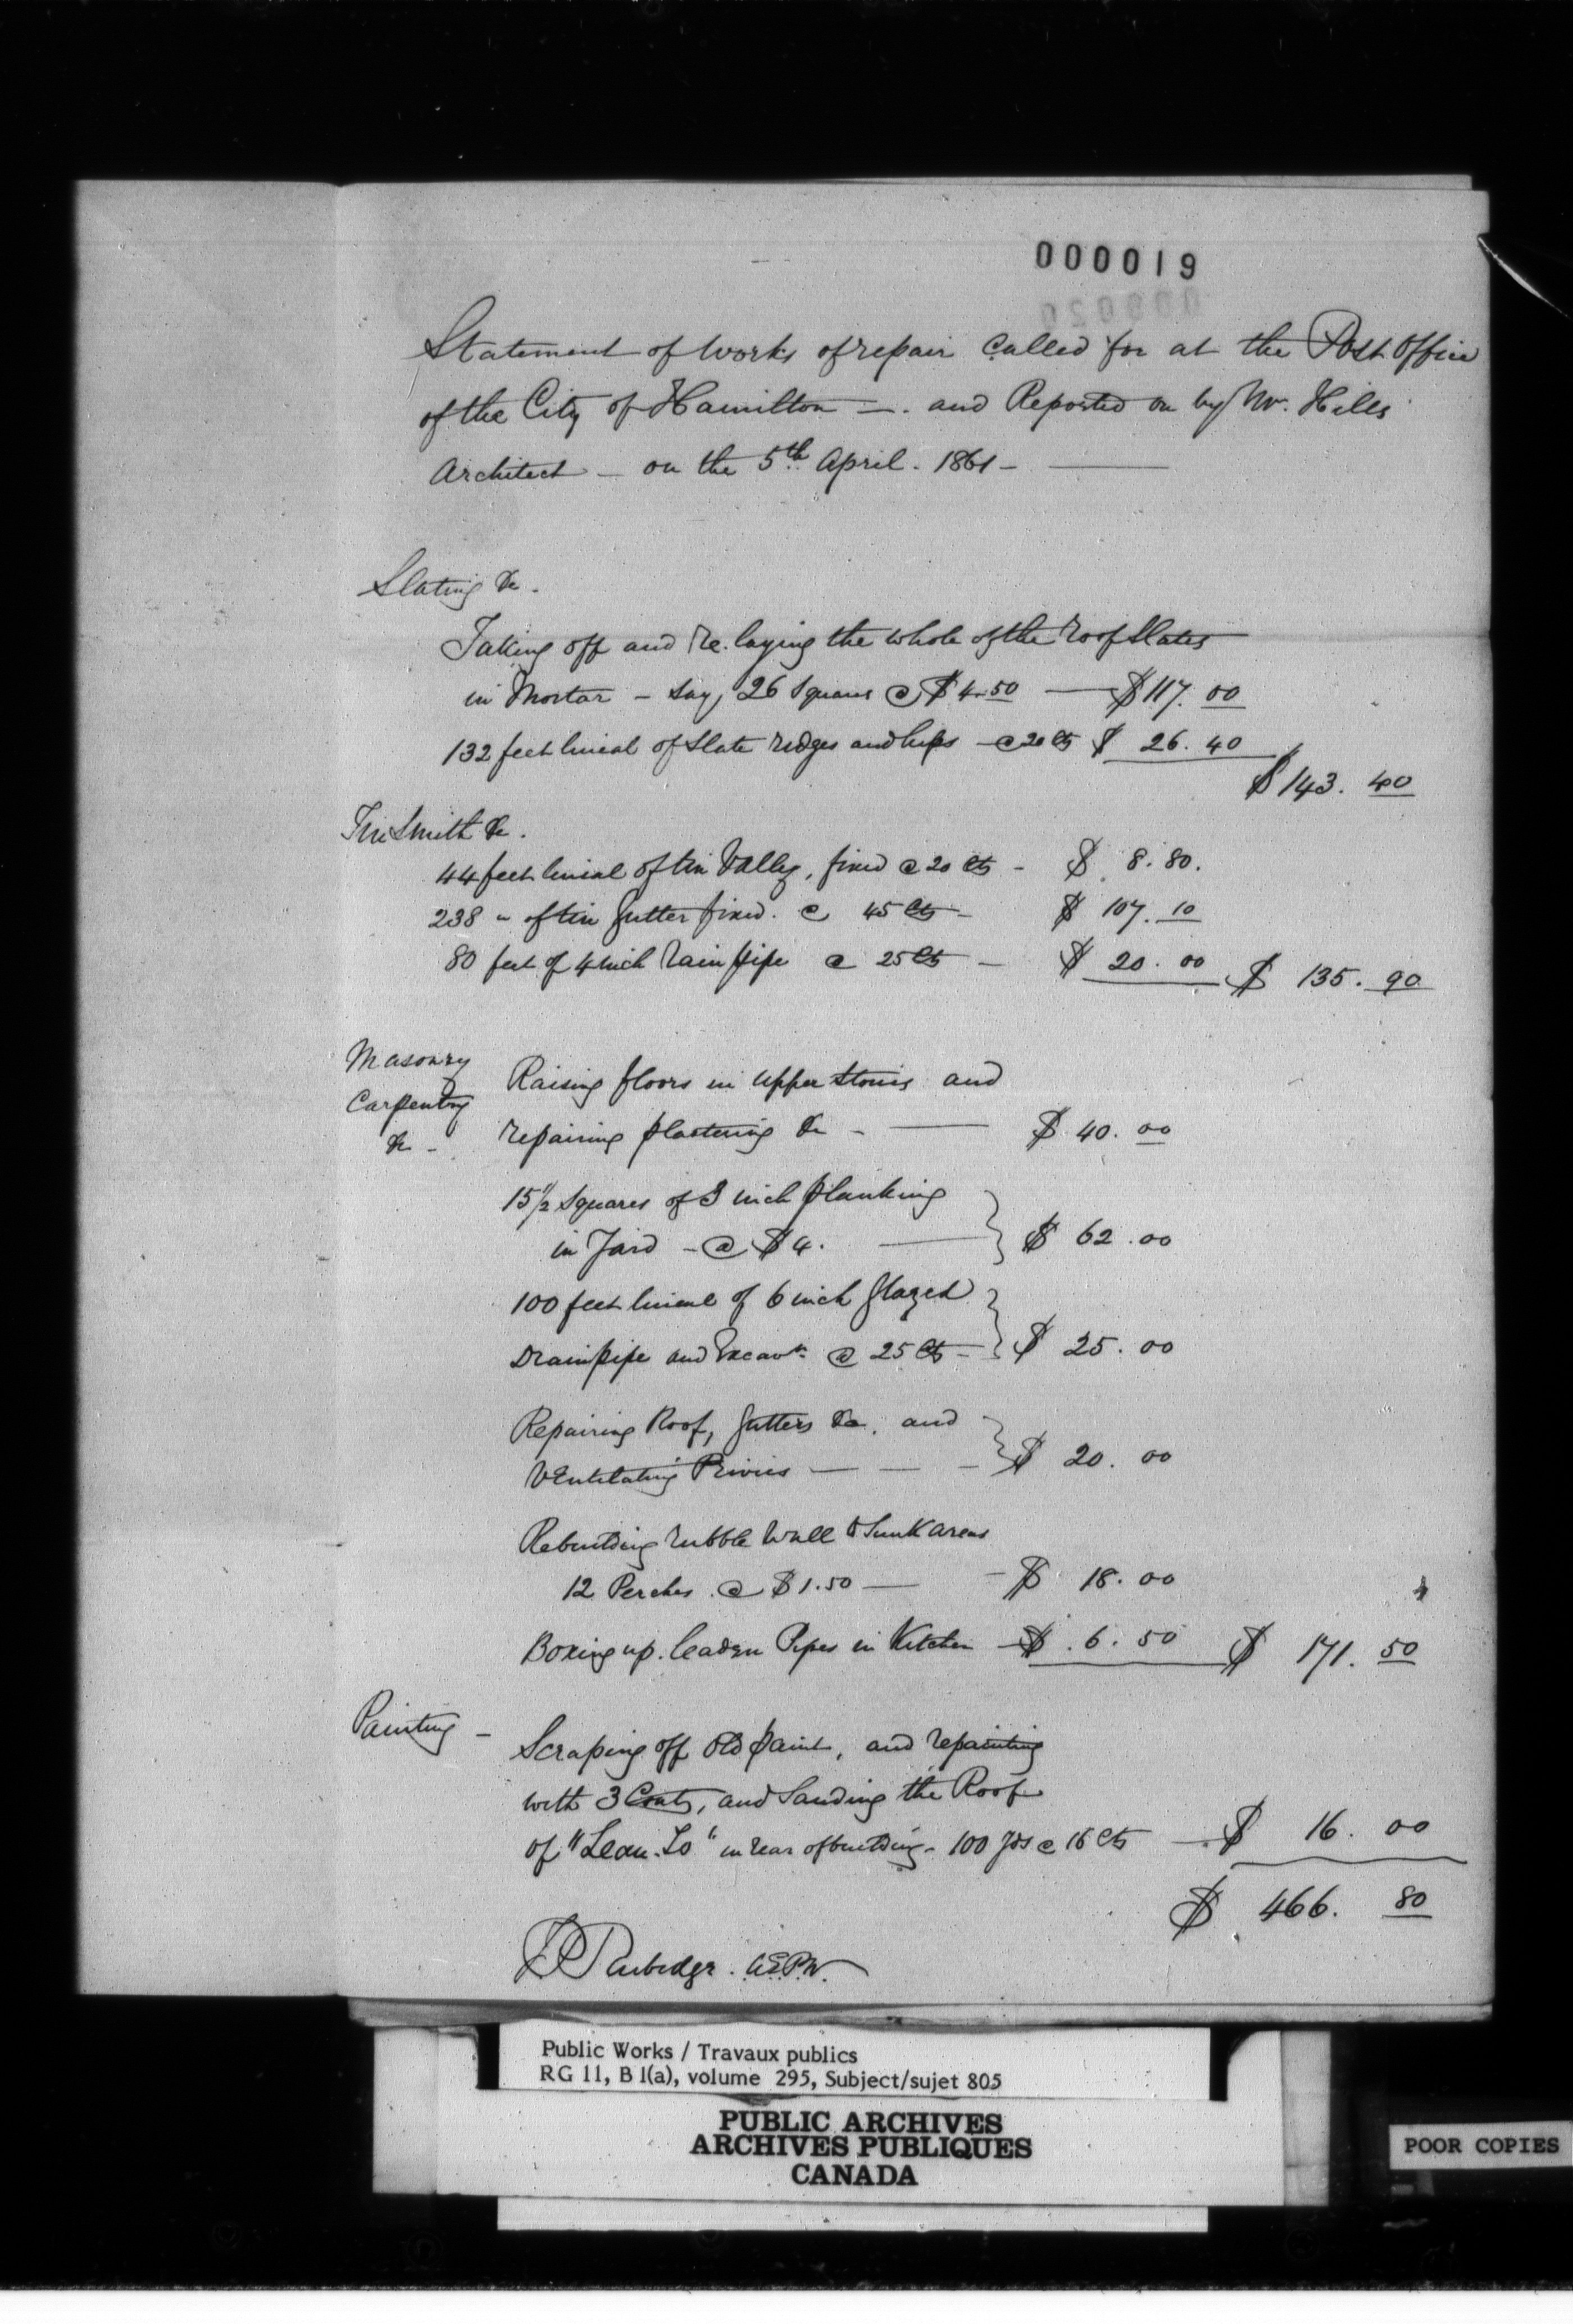 000019
Statement of works of repair called for at the Post Office
of the City of Hamilton —. and Reported on by Mr. Hills
Architect — on the 5th April. 1861 —
Slating &c.
Taking off and re.laying the whole of the roof Slates
in Mortar — say, 26 Squares @ $4.50 — $117.00
132 feet lineal of Slate ridges and hips — @ 20 Cts $ 26.40
$143.40
Tin Smith &c.
44 feet lineal of tin Valley, fixed @ 20 Cts — $ 8.80.
238 " of tin Gutter fixed. @ 45 Cts — $ 107.10
80 feet of 4 inch Rain pipe @ 25 Cts — $ 20.00 $ 135.90
Masonry
Carpentry
&c —
Raising floors in upper Stories and
repairing plastering &c — $ 40.00
15 1/2 Squares of 3 inch planking
in Yard — @ $4. $ 62.00
100 feet lineal of 6 inch glazed
Drainpipe and Excavn. @ 25 Cts — $ 25.00
Repairing Roof, Gutters &c. and
Ventilating Privies — — — $ 20.00
Rebuilding rubble Wall to Sunk areas
12 Perches @ $1.50 — — $ 18.00
Boxing up leaden Pipes in Kitchen — $ 6.50 $ 171.50
Painting —
Scraping off old paint, and repainting
with 3 Coats, and Sanding the Roof
of "Lean-To" in rear of building — 100 yds @ 16 Cts — $ 16.00
$ 466.80
Rubidge. A.E.P.W.
Public Works / Travaux publics
RG 11, B 1(a), volume 295, Subject/sujet 805
PUBLIC ARCHIVES
ARCHIVES PUBLIQUES
CANADA
POOR COPIES